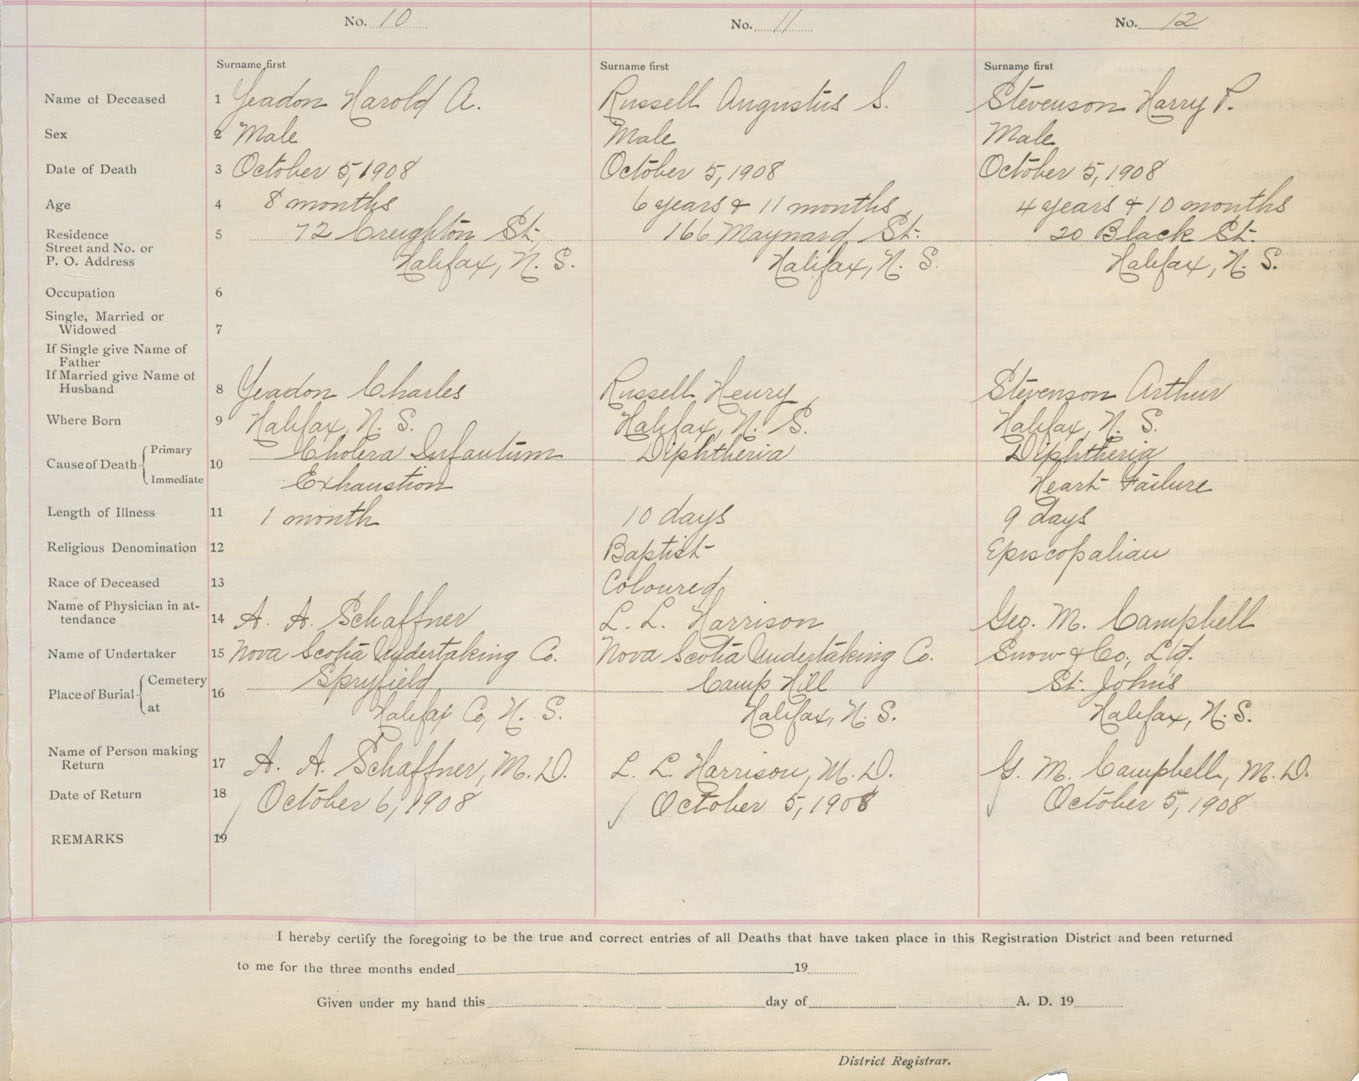 No. 10 No. 11 No. 12
Surname first Surname first Surname first
Name of Deceased 1 Yeadon Harold A. Russell Augustus S. Stevenson Harry P.
Sex 2 Male Male Male
Date of Death 3 October 5, 1908 October 5, 1908 October 5, 1908
Age 4 8 months 6 years & 11 months 4 years & 10 months
Residence 5 72 Creighton St. 166 Maynard St. 20 Black St.
Street and No. or
P. O. Address Halifax, N. S. Halifax, N. S. Halifax, N. S.
Occupation 6
Single, Married or
Widowed 7
If Single give Name of
Father
If Married give Name of
Husband 8 Yeadon Charles Russell Henry Stevenson Arthur
Where Born 9 Halifax, N. S. Halifax, N. S. Halifax, N. S.
Cause of Death Primary 10 Cholera Infantum Diphtheria Diphtheria
Immediate Exhaustion Heart Failure
Length of Illness 11 1 month 10 days 9 days
Religious Denomination 12 Baptist Episcopalian
Race of Deceased 13 Coloured
Name of Physician in at-
tendance 14 A. A. Schaffner L. L. Harrison Geo. M. Campbell
Name of Undertaker 15 Nova Scotia Undertaking Co. Nova Scotia Undertaking Co. Snow & Co., Ltd.
Place of Burial Cemetery 16 Spryfield Camp Hill St. John's
at Halifax Co, N. S. Halifax, N. S. Halifax, N. S.
Name of Person making
Return 17 A. A. Schaffner, M. D. L. L. Harrison, M. D. G. M. Campbell, M. D.
Date of Return 18 October 6, 1908 October 5, 1908 October 5, 1908
REMARKS 19
I hereby certify the foregoing to be the true and correct entries of all Deaths that have taken place in this Registration District and been returned
to me for the three months ended 19
Given under my hand this day of A. D. 19
District Registrar.